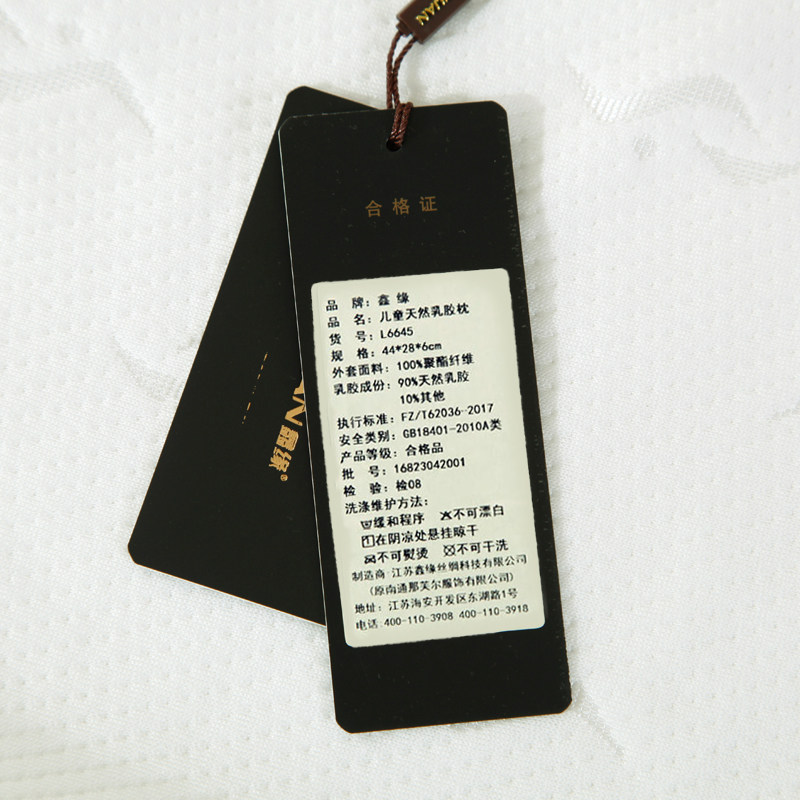 UAN
合格证
品 牌：鑫 缘
品 名：儿童天然乳胶枕
货 号：L6645
规 格：44*28*6cm
外套面料：100%聚酯纤维
乳胶成份：90%天然乳胶
10%其他
执行标准：FZ/T62036-2017
安全类别：GB18401-2010A类
产品等级：合格品
批 号：16823042001
检 验：检08
洗涤维护方法：
缓和程序 不可漂白
在阴凉处悬挂晾干
不可熨烫 不可干洗
制造商：江苏鑫缘丝绸科技有限公司
（原南通那芙尔服饰有限公司）
地址：江苏海安开发区东湖路1号
电话：400-110-3908 400-110-3918
鑫缘®